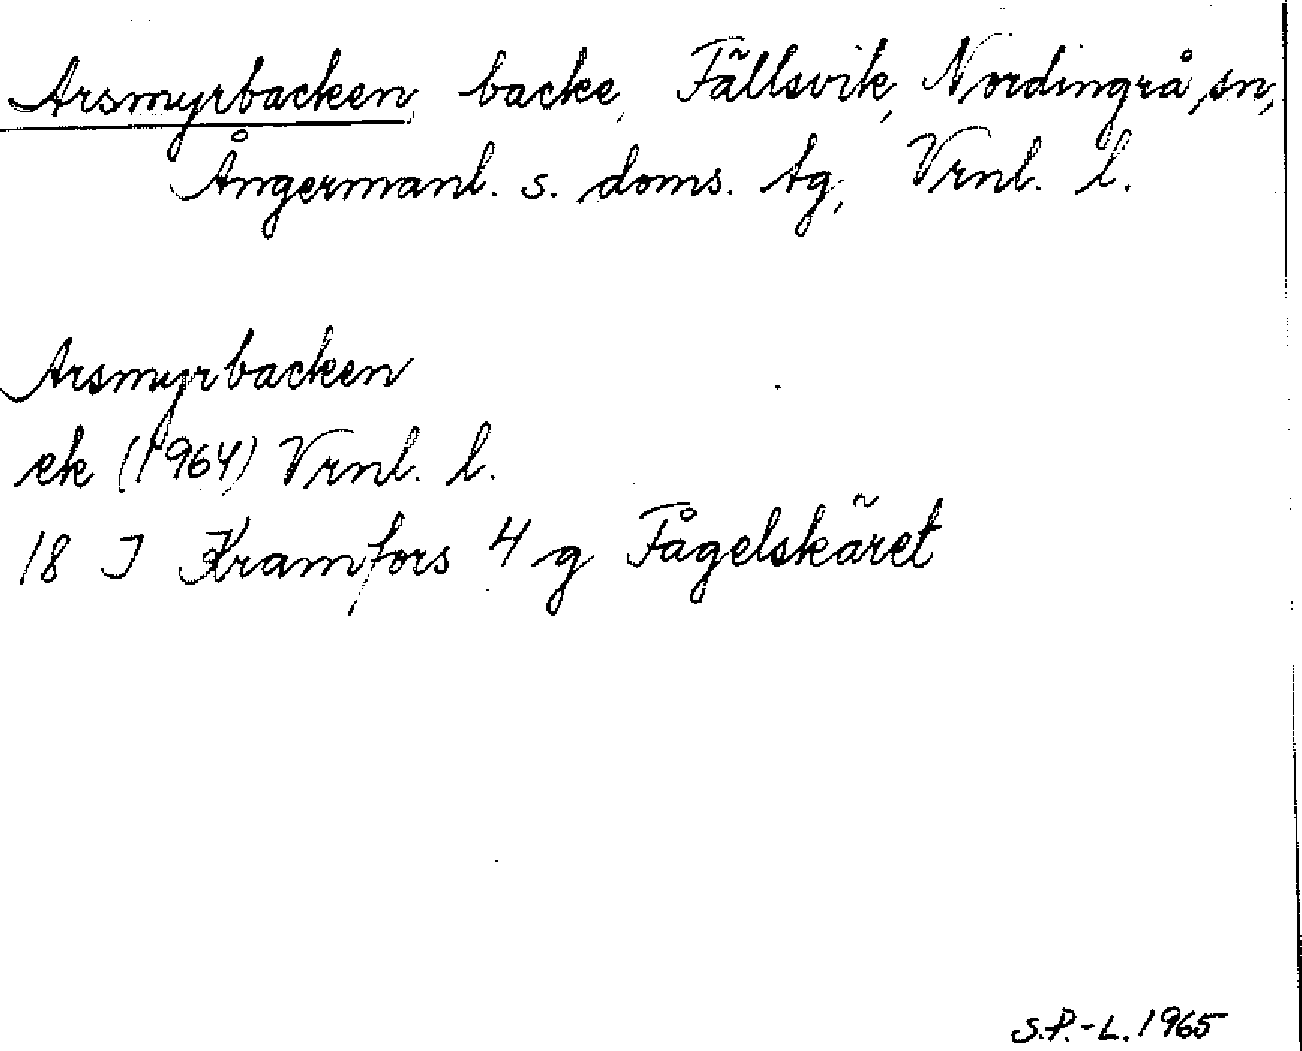 Arsmyrbacken backe, Fällsvik, Nordingrå sn,
Ångermanl. s. doms. tg, Vrnl. l.
Arsmyrbacken
ek (1964) Vrnl. l.
18 J Kramfors 4 g Fågelskäret
S.P.-L. 1965